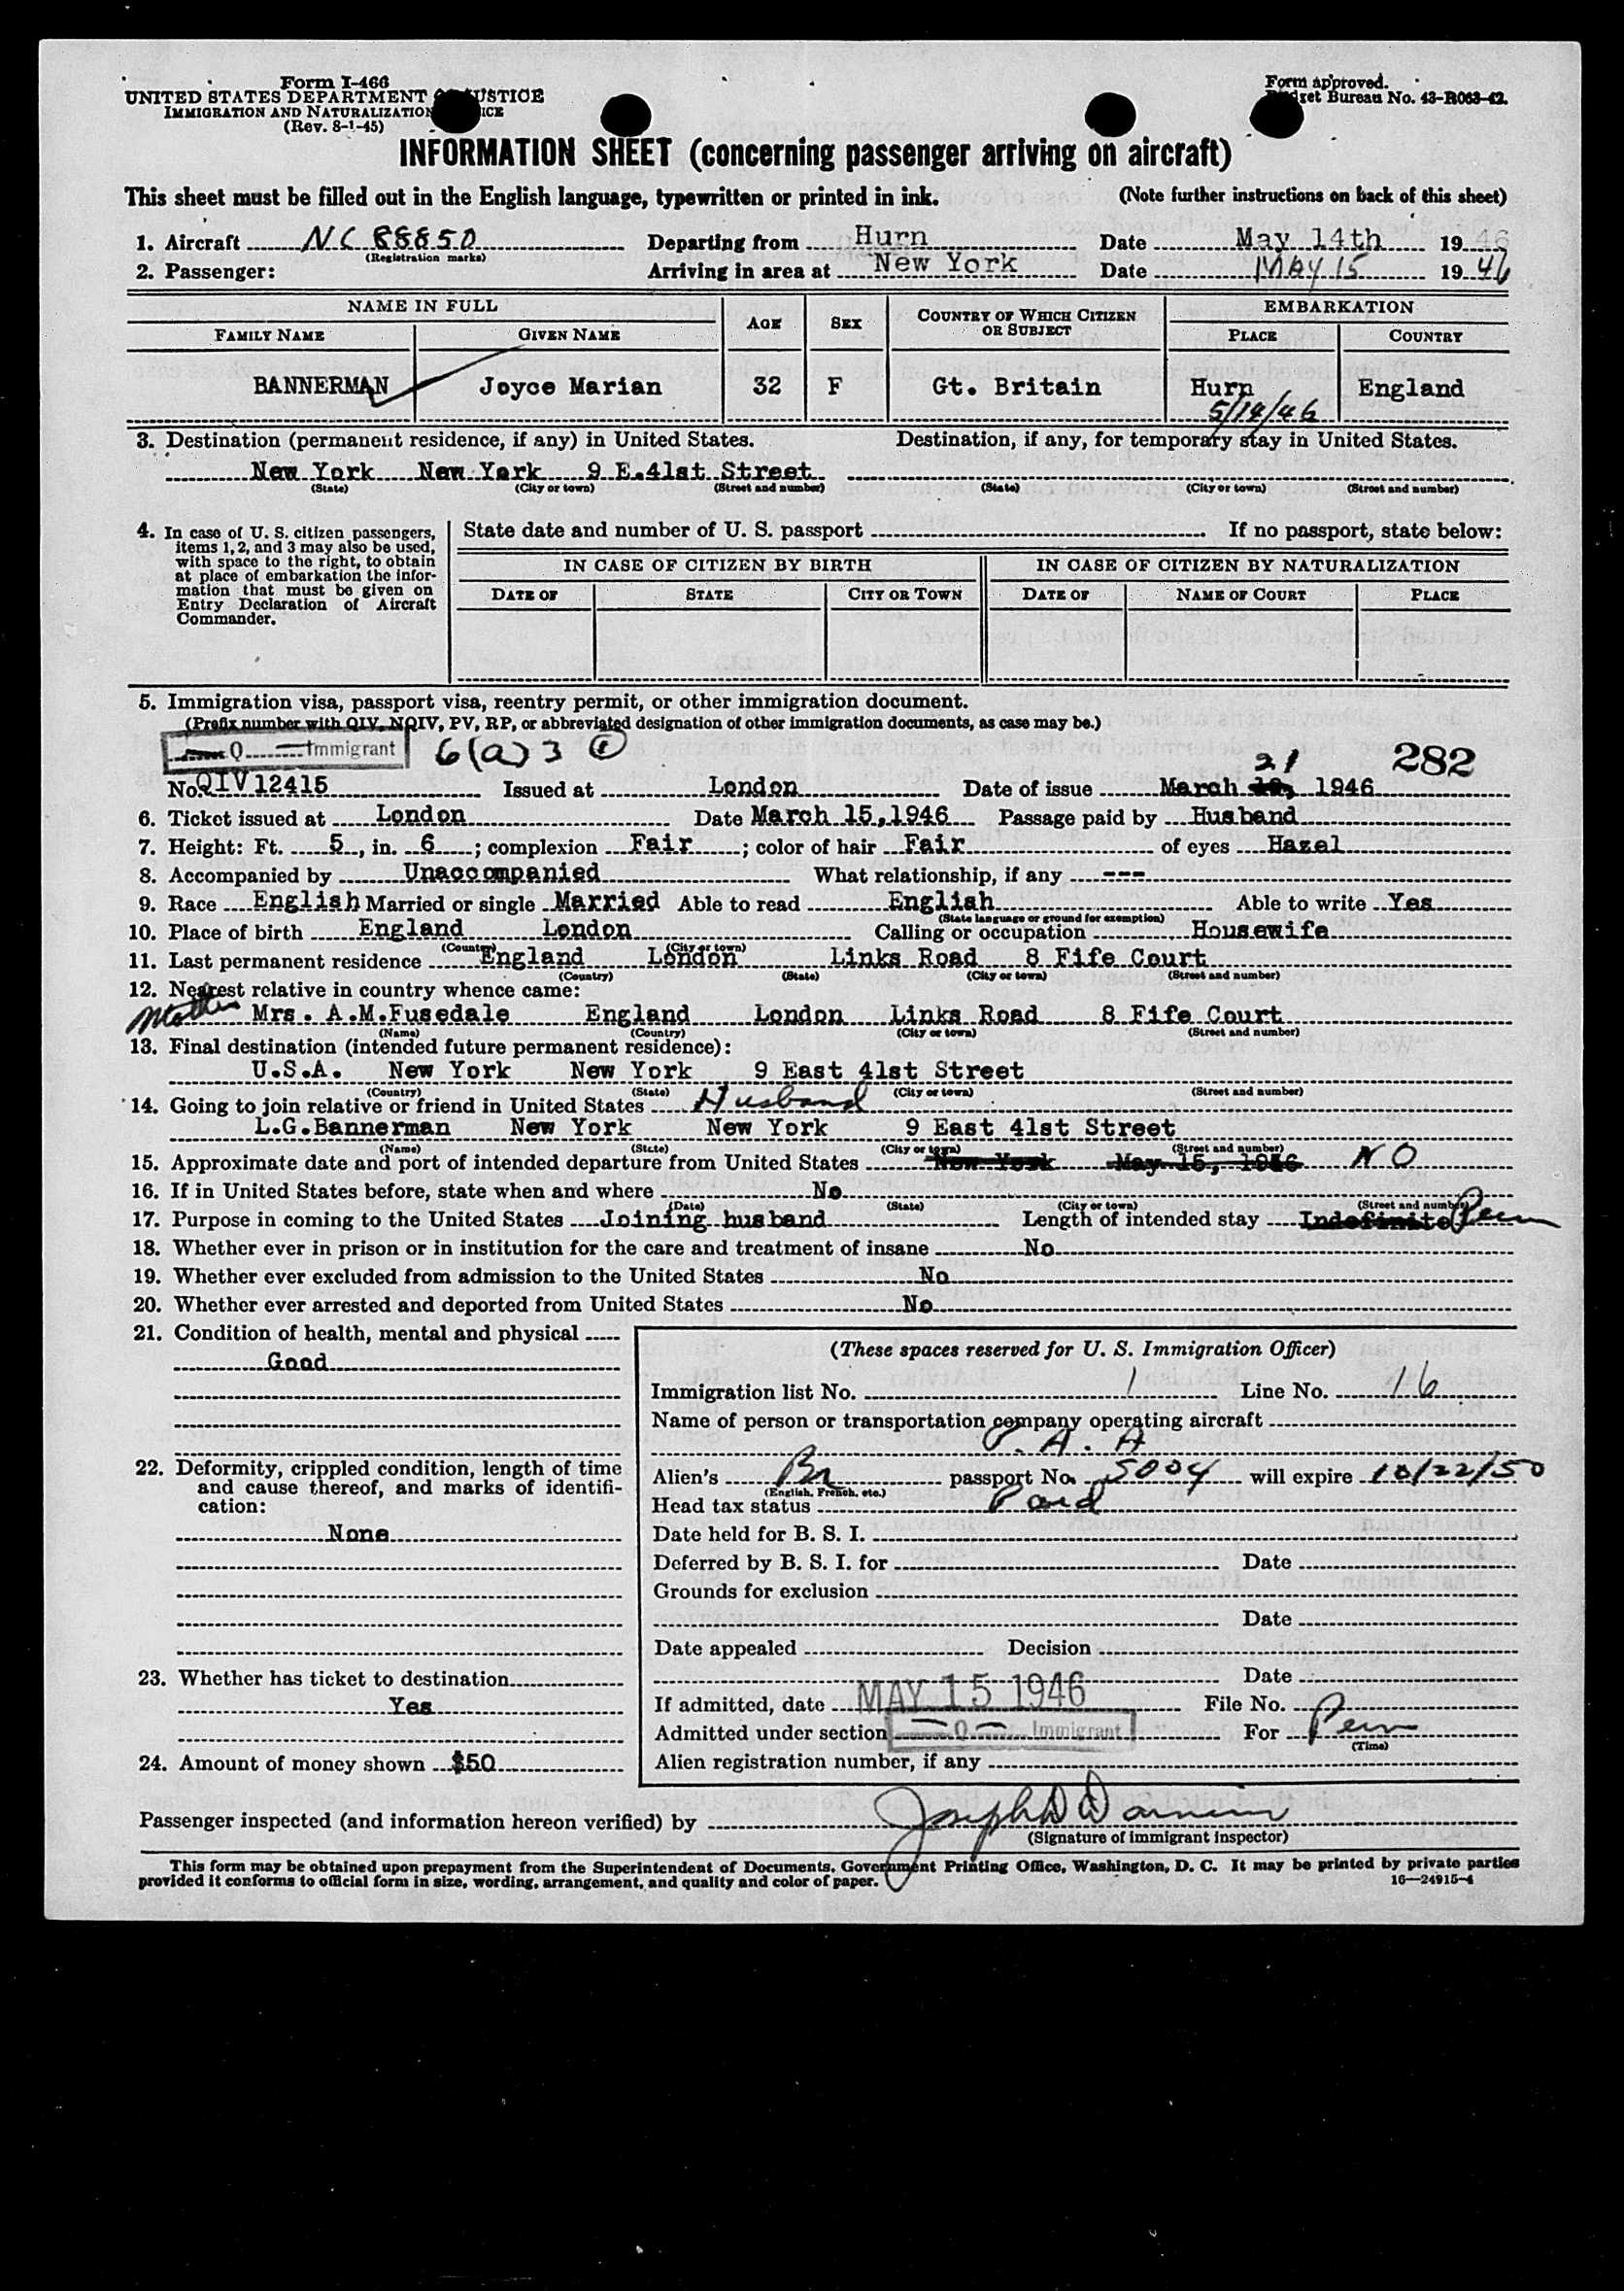 Form I-466
UNITED STATES DEPARTMENT JUSTICE
IMMIGRATION AND NATURALIZATION
(Rev. 8-1-45)
Form approved.
Bureau No. 43-R063-42.
INFORMATION SHEET (concerning passenger arriving on aircraft)
This sheet must be filled out in the English language, typewritten or printed in ink. (Note further instructions on back of this sheet)
1. Aircraft NC 88850 Departing from Hurn Date May 14th 1946
(Registration marks)
2. Passenger: Arriving in area at New York Date MAY 15 1946
NAME IN FULL AGE SEX COUNTRY OF WHICH CITIZEN OR SUBJECT EMBARKATION
FAMILY NAME GIVEN NAME PLACE COUNTRY
BANNERMAN Joyce Marian 32 F Gt. Britain Hurn England
5/14/46
3. Destination (permanent residence, if any) in United States. Destination, if any, for temporary stay in United States.
New York New York 9 E.41st Street
(State) (City or town) (Street and number) (State) (City or town) (Street and number)
4. In case of U. S. citizen passengers, items 1, 2, and 3 may also be used, with space to the right, to obtain at place of embarkation the information that must be given on Entry Declaration of Aircraft Commander.
State date and number of U. S. passport If no passport, state below:
IN CASE OF CITIZEN BY BIRTH IN CASE OF CITIZEN BY NATURALIZATION
DATE OF STATE CITY OR TOWN DATE OF NAME OF COURT PLACE
5. Immigration visa, passport visa, reentry permit, or other immigration document.
(Prefix number with QIV, NQIV, PV, RP, or abbreviated designation of other immigration documents, as case may be.)
Q Immigrant 6(a)3 282
21
No. QIV 12415 Issued at London Date of issue March 1946
6. Ticket issued at London Date March 15,1946 Passage paid by Husband
7. Height: Ft. 5, in. 6; complexion Fair; color of hair Fair of eyes Hazel
8. Accompanied by Unaccompanied What relationship, if any ---
9. Race English Married or single Married Able to read English Able to write Yes
(State language or ground for exemption)
10. Place of birth England London Calling or occupation Housewife
(Country) (City or town)
11. Last permanent residence England London Links Road 8 Fife Court
(Country) (State) (City or town) (Street and number)
12. Nearest relative in country whence came:
Mother Mrs. A.M.Fusedale England London Links Road 8 Fife Court
(Name) (Country) (City or town) (Street and number)
13. Final destination (intended future permanent residence):
U.S.A. New York New York 9 East 41st Street
(Country) (State) (City or town) (Street and number)
14. Going to join relative or friend in United States Husband
L.G.Bannerman New York New York 9 East 41st Street
(Name) (State) (City or town) (Street and number)
15. Approximate date and port of intended departure from United States New York May 15, 1946 NO
16. If in United States before, state when and where No
(Date) (State) (City or town) (Street and number)
17. Purpose in coming to the United States Joining husband Length of intended stay Indefinite Perm
18. Whether ever in prison or in institution for the care and treatment of insane No
19. Whether ever excluded from admission to the United States No
20. Whether ever arrested and deported from United States No
21. Condition of health, mental and physical
Good
22. Deformity, crippled condition, length of time and cause thereof, and marks of identification:
None
23. Whether has ticket to destination
Yes
24. Amount of money shown $50
(These spaces reserved for U. S. Immigration Officer)
Immigration list No. 1 Line No. 16
Name of person or transportation company operating aircraft
P. A. A
Alien's Br passport No. 5004 will expire 10/22/50
(English, French, etc.)
Head tax status Paid
Date held for B. S. I.
Deferred by B. S. I. for Date
Grounds for exclusion
Date
Date appealed Decision
Date
If admitted, date MAY 15 1946 File No.
Admitted under section Q Immigrant For Perm
(Time)
Alien registration number, if any
Passenger inspected (and information hereon verified) by Joseph
(Signature of immigrant inspector)
This form may be obtained upon prepayment from the Superintendent of Documents, Government Printing Office, Washington, D. C. It may be printed by private parties
provided it conforms to official form in size, wording, arrangement, and quality and color of paper. 16—24915-4